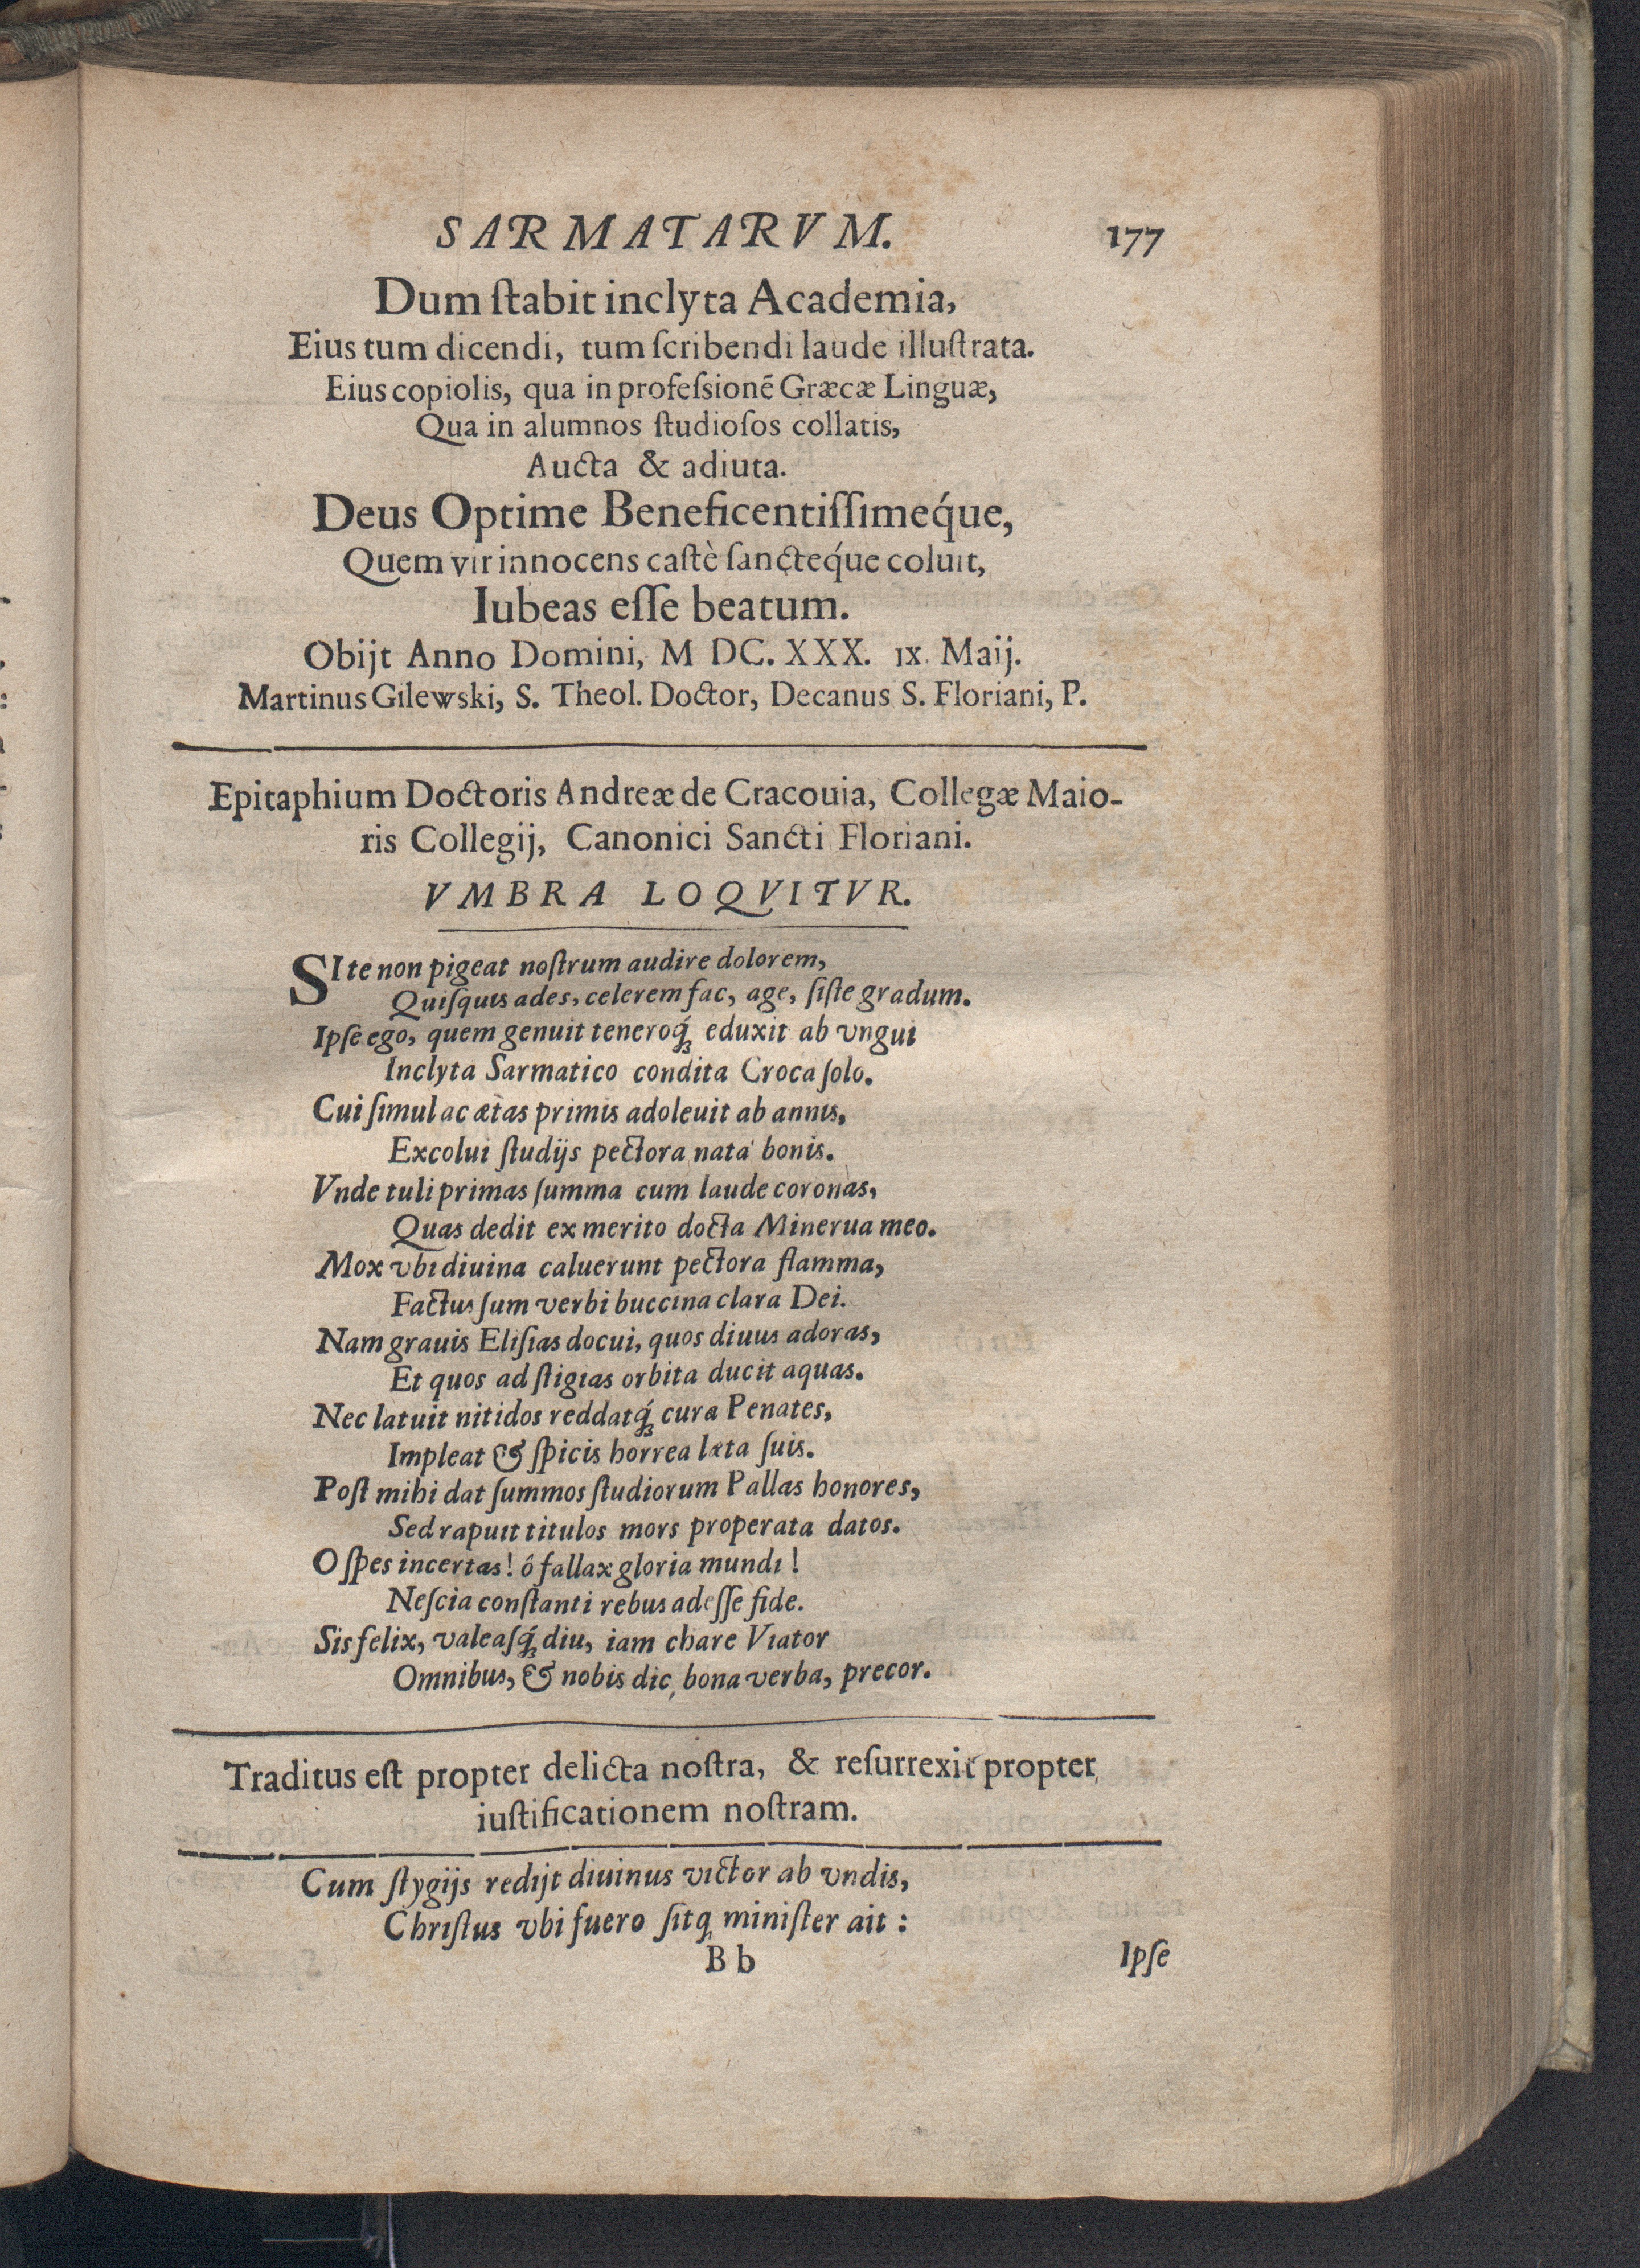 SARMATARVM. 177
Dum ſtabit inclyta Academia,
Eius tum dicendi, tum ſcribendi laude illuſtrata.
Eius copiolis, qua in profeſsionē Græcæ Linguæ,
Qua in alumnos ſtudioſos collatis,
Aucta & adiuta.
Deus Optime Beneficentiſſimeq́ue,
Quem vir innocens caſtè ſancteq́ue coluit,
Iubeas eſſe beatum.
Obijt Anno Domini, M DC. XXX. IX. Maij.
Martinus Gilewski, S. Theol. Doctor, Decanus S. Floriani, P.
Epitaphium Doctoris Andreæ de Cracouia, Collegæ Maio-
ris Collegij, Canonici Sancti Floriani.
VMBRA LOQVITVR.
SI te non pigeat noſtrum audire dolorem,
Quiſquis ades, celerem fac, age, ſiſte gradum.
Ipſe ego, quem genuit teneroq́ꝫ eduxit ab vngui
Inclyta Sarmatico condita Croca ſolo.
Cui ſimul ac ætas primis adoleuit ab annis,
Excolui ſtudijs pectora nata bonis.
Vnde tuli primas ſumma cum laude coronas,
Quas dedit ex merito docta Minerua meo.
Mox vbi diuina caluerunt pectora flamma,
Factus ſum verbi buccina clara Dei.
Nam grauis Eliſias docui, quos diuus adoras,
Et quos ad ſtigias orbita ducit aquas.
Nec latuit nitidos reddatq́ꝫ cura Penates,
Impleat & ſpicis horrea læta ſuis.
Poſt mihi dat ſummos ſtudiorum Pallas honores,
Sed rapuit titulos mors properata datos.
O ſpes incertas! ó fallax gloria mundi!
Neſcia conſtanti rebus adeſſe fide.
Sis felix, valeaſq́ꝫ diu, iam chare Viator
Omnibus, & nobis dic, bona verba, precor.
Traditus eſt propter delicta noſtra, & reſurrexit propter
iuſtificationem noſtram.
Cum ſtygijs redijt diuinus victor ab vndis,
Chriſtus vbi fuero ſitq, miniſter ait :
B b Ipſe